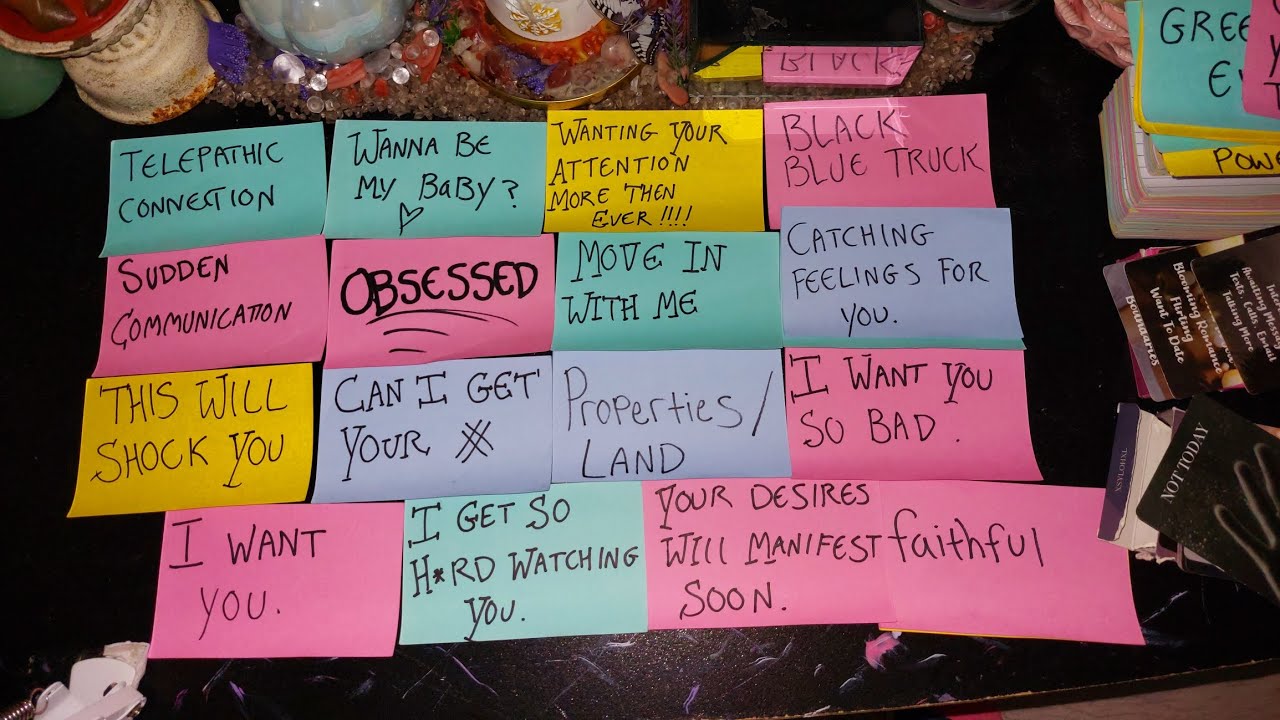 BLACK
GREE
EV
POWE
TELEPATHIC
CONNECTION
WANNA BE
MY BABY?
WANTING YOUR
ATTENTION
MORE THEN
EVER!!!!
BLACK
BLUE TRUCK
SUDDEN
COMMUNICATION
OBSESSED
MOVE IN
WITH ME
CATCHING
FEELINGS FOR
YOU.
THIS WILL
SHOCK YOU
CAN I GET
YOUR #
Properties/
LAND
I WANT YOU
SO BAD.
I WANT
YOU.
I GET SO
H*RD WATCHING
YOU.
YOUR DESIRES
WILL MANIFEST
SOON.
faithful
Blooming Romance
Flirting
Want To Date
Boundaries
Texts, Calls, Email
Taking More
XSYLOHXL
NOT TODAY